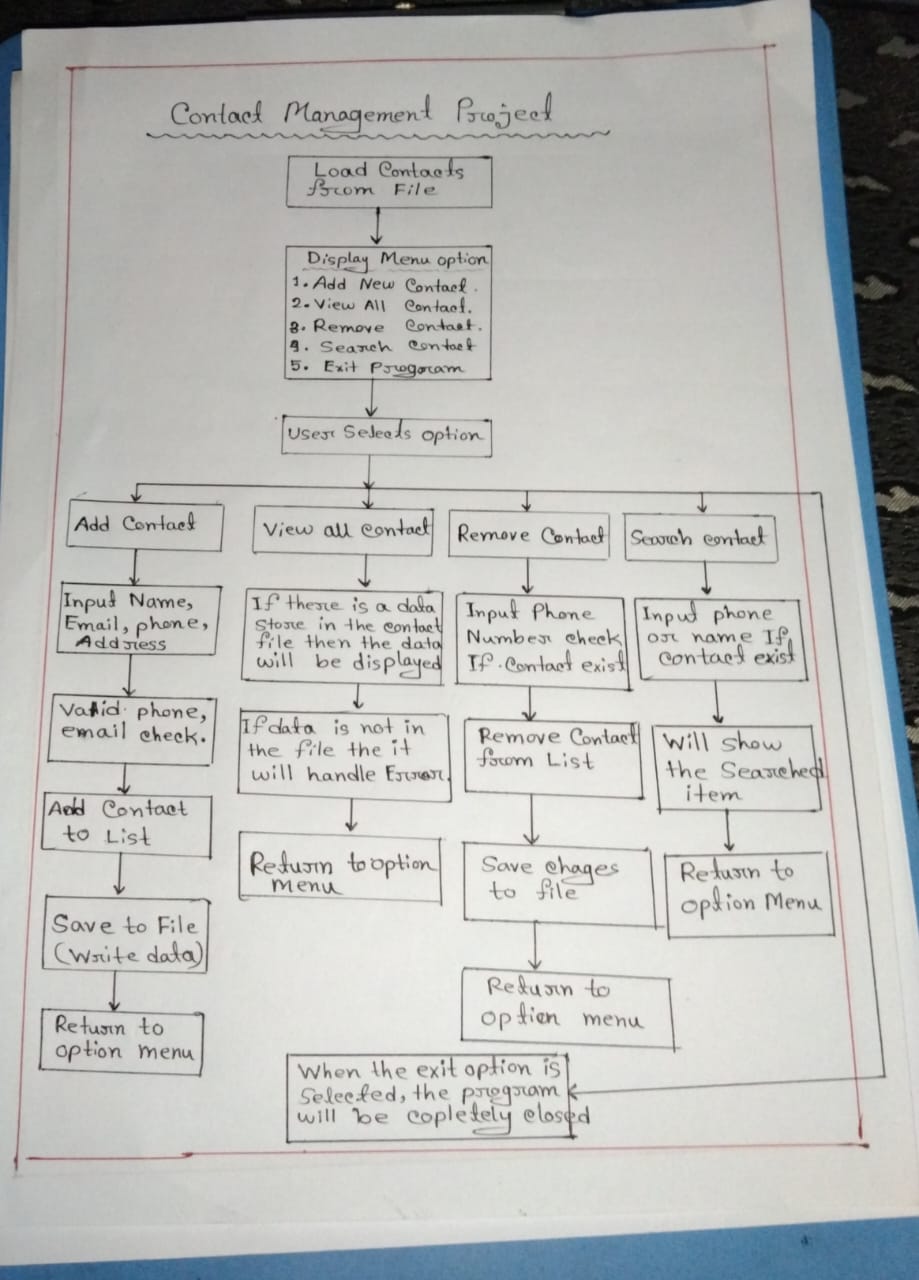 Contact Management Project
Load Contacts
from File
Display Menu option
1. Add New Contact.
2. View All Contact.
3. Remove Contact.
4. Search Contact
5. Exit Program
User Selects option
Add Contact
Input Name,
Email, phone,
Address
Valid phone,
email check.
Add Contact
to List
Save to File
(Write data)
Return to
option menu
View all contact
If there is a data
store in the contact
file then the data
will be displayed
If data is not in
the file the it
will handle Error.
Return to option
menu
Remove Contact
Input Phone
Number check
If Contact exist
Remove Contact
from List
Save chages
to file
Return to
option menu
Search contact
Input phone
or name If
contact exist
Will show
the Searched
item
Return to
option Menu
When the exit option is
selected, the program
will be copletely closed